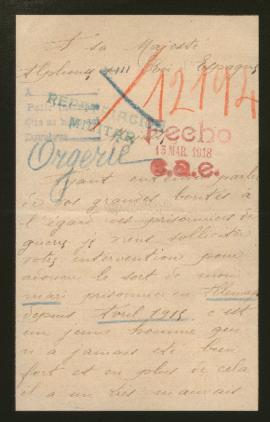 A sa Majesté
Alphonse XIII Roi d'Espagne
12194
MILITAR
Hecho
13 MAR. 1918
e.a.c.
Orgerie
Ayant entendu parler
de vos grandes bontés à
l'égard des prisonniers de
guerre je viens solliciter
votre intervention pour
adoucir le sort de mon
mari prisonnier en Allemagne
depuis Avril 1915 c'est
un jeune homme qui
n'a jamais été bien
fort et en plus de cela
il a un très mauvais